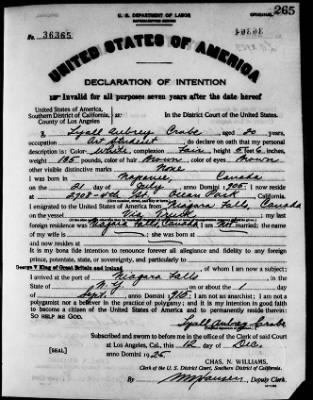 U. S. DEPARTMENT OF LABOR
NATURALIZATION SERVICE
265
No. 36365
UNITED STATES OF AMERICA
DECLARATION OF INTENTION
Invalid for all purposes seven years after the date hereof
United States of America,
Southern District of California, ss:
County of Los Angeles
In the District Court of the United States.
I, Lyall Aubrey Crabe, aged 20 years,
occupation Art Student, do declare on oath that my personal
description is: Color White, complexion Fair, height 5 feet 6 inches,
weight 135 pounds, color of hair Brown, color of eyes Brown
other visible distinctive marks None
I was born in Napanee, Canada
on the 21 day of July, anno Domini 1905; I now reside
at Ocean Park, California.
I emigrated to the United States of America from Niagara Falls, Canada
on the vessel Via; my last
foreign residence was Niagara Falls, Canada. I am Not married; the name
of my wife is; she was born at
and now resides at
It is my bona fide intention to renounce forever all allegiance and fidelity to any foreign
prince, potentate, state, or sovereignty, and particularly to
George V King of Great Britain and Ireland, of whom I am now a subject;
I arrived at the port of Niagara Falls, in the
State of N.Y., on or about the 1 day
of Sept., anno Domini; I am not an anarchist; I am not a
polygamist nor a believer in the practice of polygamy; and it is my intention in good faith
to become a citizen of the United States of America and to permanently reside therein:
SO HELP ME GOD.
Lyall Aubrey Crabe
Subscribed and sworn to before me in the office of the Clerk of said Court
at Los Angeles, Cal., this 12 day of Dec.
[SEAL] anno Domini 1925.
CHAS. N. WILLIAMS,
Clerk of the U. S. District Court, Southern District of California.
By, Deputy Clerk.